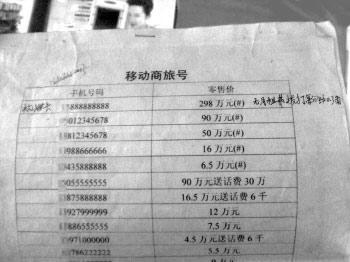 移动商旅号
手机号码 零售价
888888888 298 万元(#)
012345678 90 万元(#)
812345678 50 万元(#)
988666666 16 万元(#)
435888888 6.5 万元(#)
055555555 90 万元送话费 30 万
875888888 16.5 万元送话费 6 千
927999999 12 万元
886555555 7.5 万元
971000000 4.5 万元送话费 6 千
786222222 5.5 万元